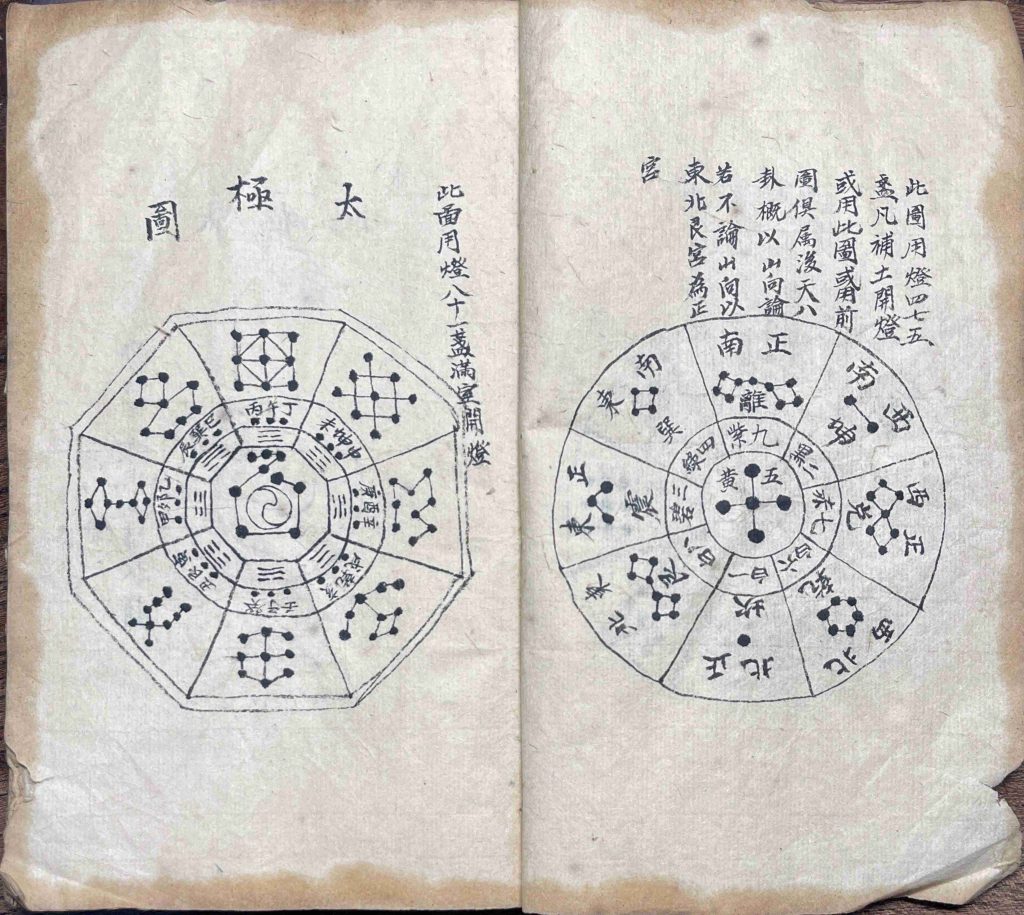 此圖用燈四七五
盞凡補土開燈
或用此圖或用前
圖俱属後天八
卦概以山向論
若不論山向以
東北艮宮為正
宮
正南
離
九紫
西南
坤
二黑
正西
兌
七赤
西北
乾
六白
正北
坎
一白
東北
艮
八白
正東
震
三碧
東南
巽
四綠
五黃
此面用燈八十一盞滿室開燈
太極圖
丙午丁
未坤申
庚酉辛
戌乾亥
壬子癸
丑艮寅
甲卯乙
辰巽巳